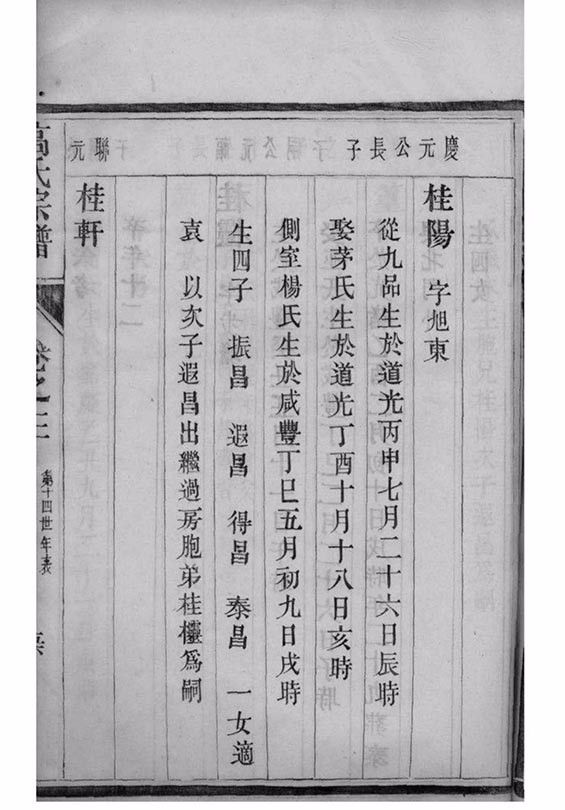 慶元公長子
桂陽 字旭東
從九品生於道光丙申七月二十六日辰時
娶茅氏生於道光丁酉十月十八日亥時
側室楊氏生於咸豐丁巳五月初九日戌時
生四子 振昌 遐昌 得昌 泰昌 一女適
袁 以次子遐昌出繼過房胞弟桂欞爲嗣
聯元
桂軒
高氏宗譜
卷之三
第十四世年表